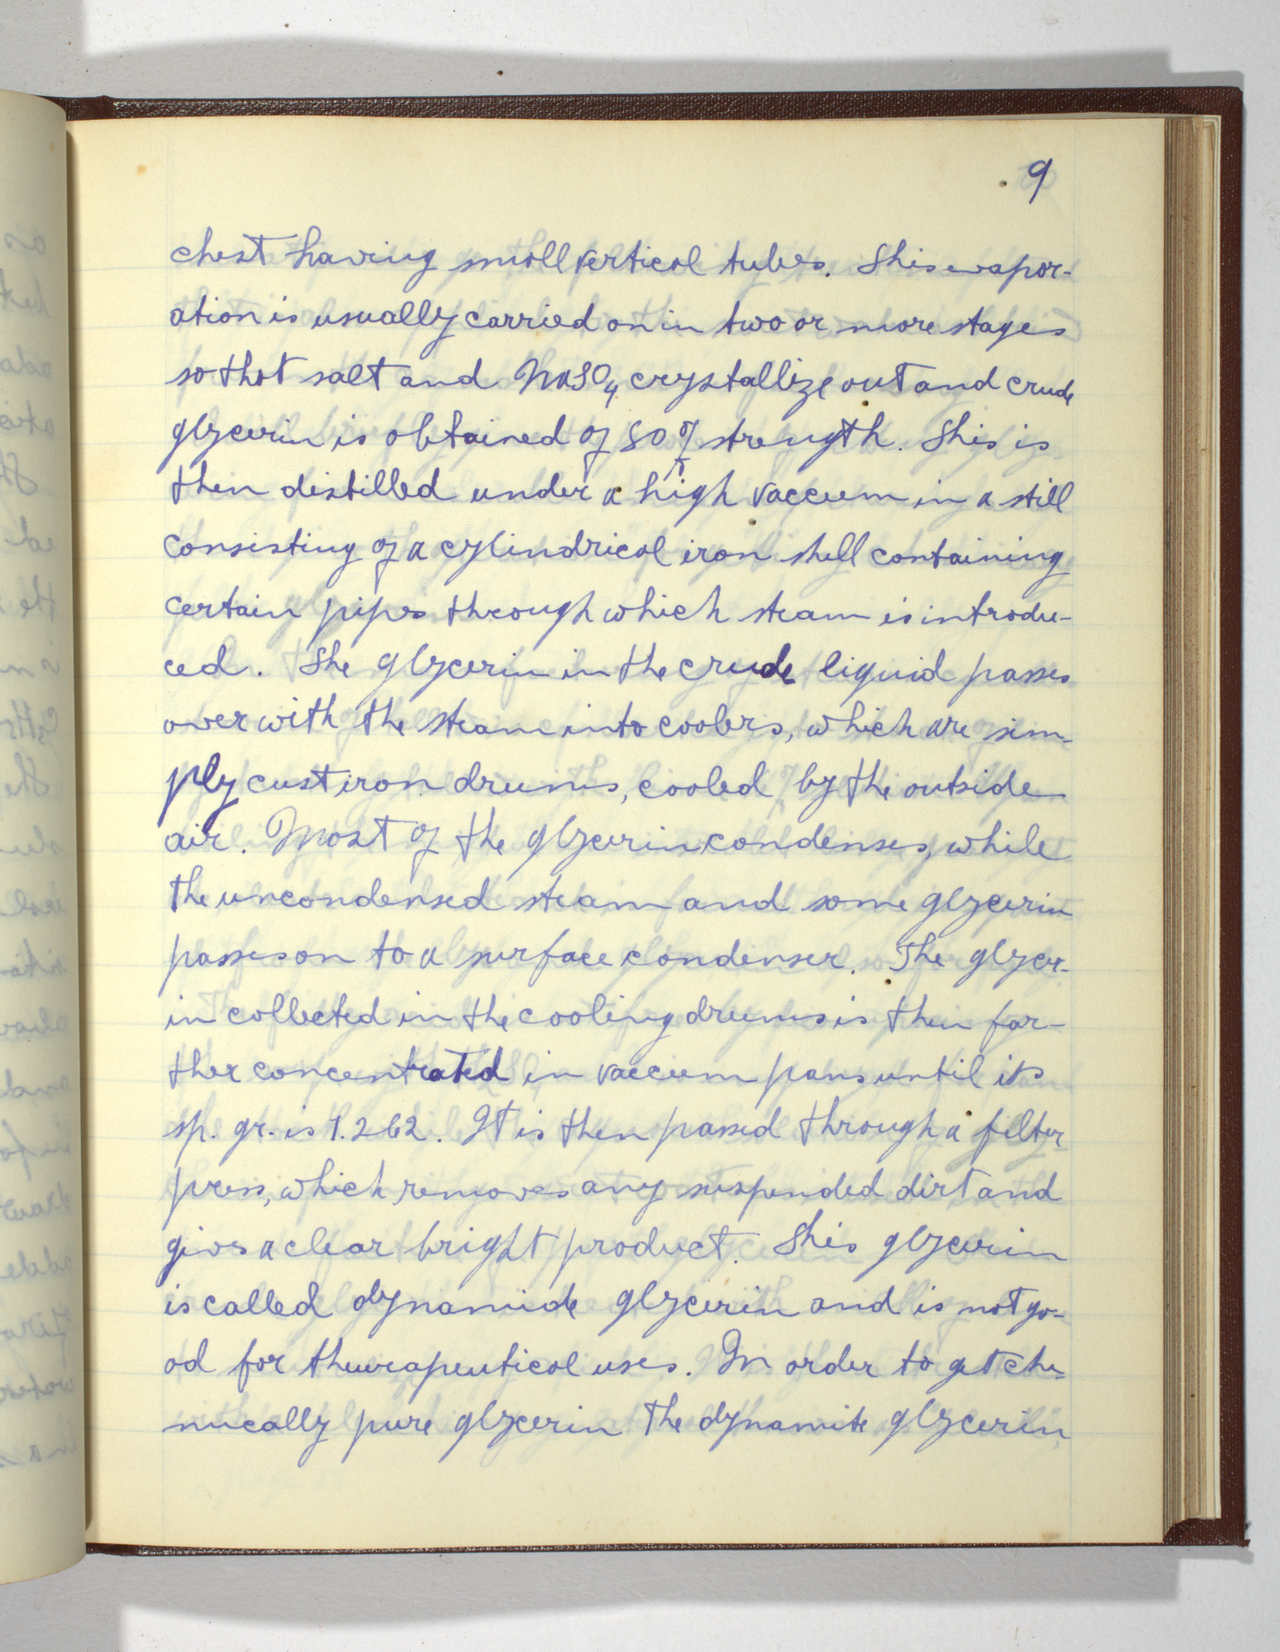 9
chest having small vertical tubes. This evapor-
ation is usually carried on in two or more stages
so that salt and NaSO4 crystallize out and crude
glycerin is obtained of 80% strength. This is
then distilled under a high vaccum in a still
consisting of a cylindrical iron shell containing
certain pipes through which steam is introdu-
ced. The glycerin in the crude liquid passes
over with the steam into coolers, which are sim-
ply cast iron drums, cooled by the outside
air. Most of the glycerin condenses, while
the uncondensed steam and some glycerin
passes on to a surface condenser. The glycer-
in collected in the cooling drums is then far-
ther concentrated in vaccum pans until its
sp. gr. is 1.262. It is then passed through a filter
press, which removes any suspended dirt and
gives a clear bright product. This glycerin
is called dynamide glycerin and is not go-
od for theurapeutical uses. In order to get che-
mically pure glycerin the dynamite glycerin